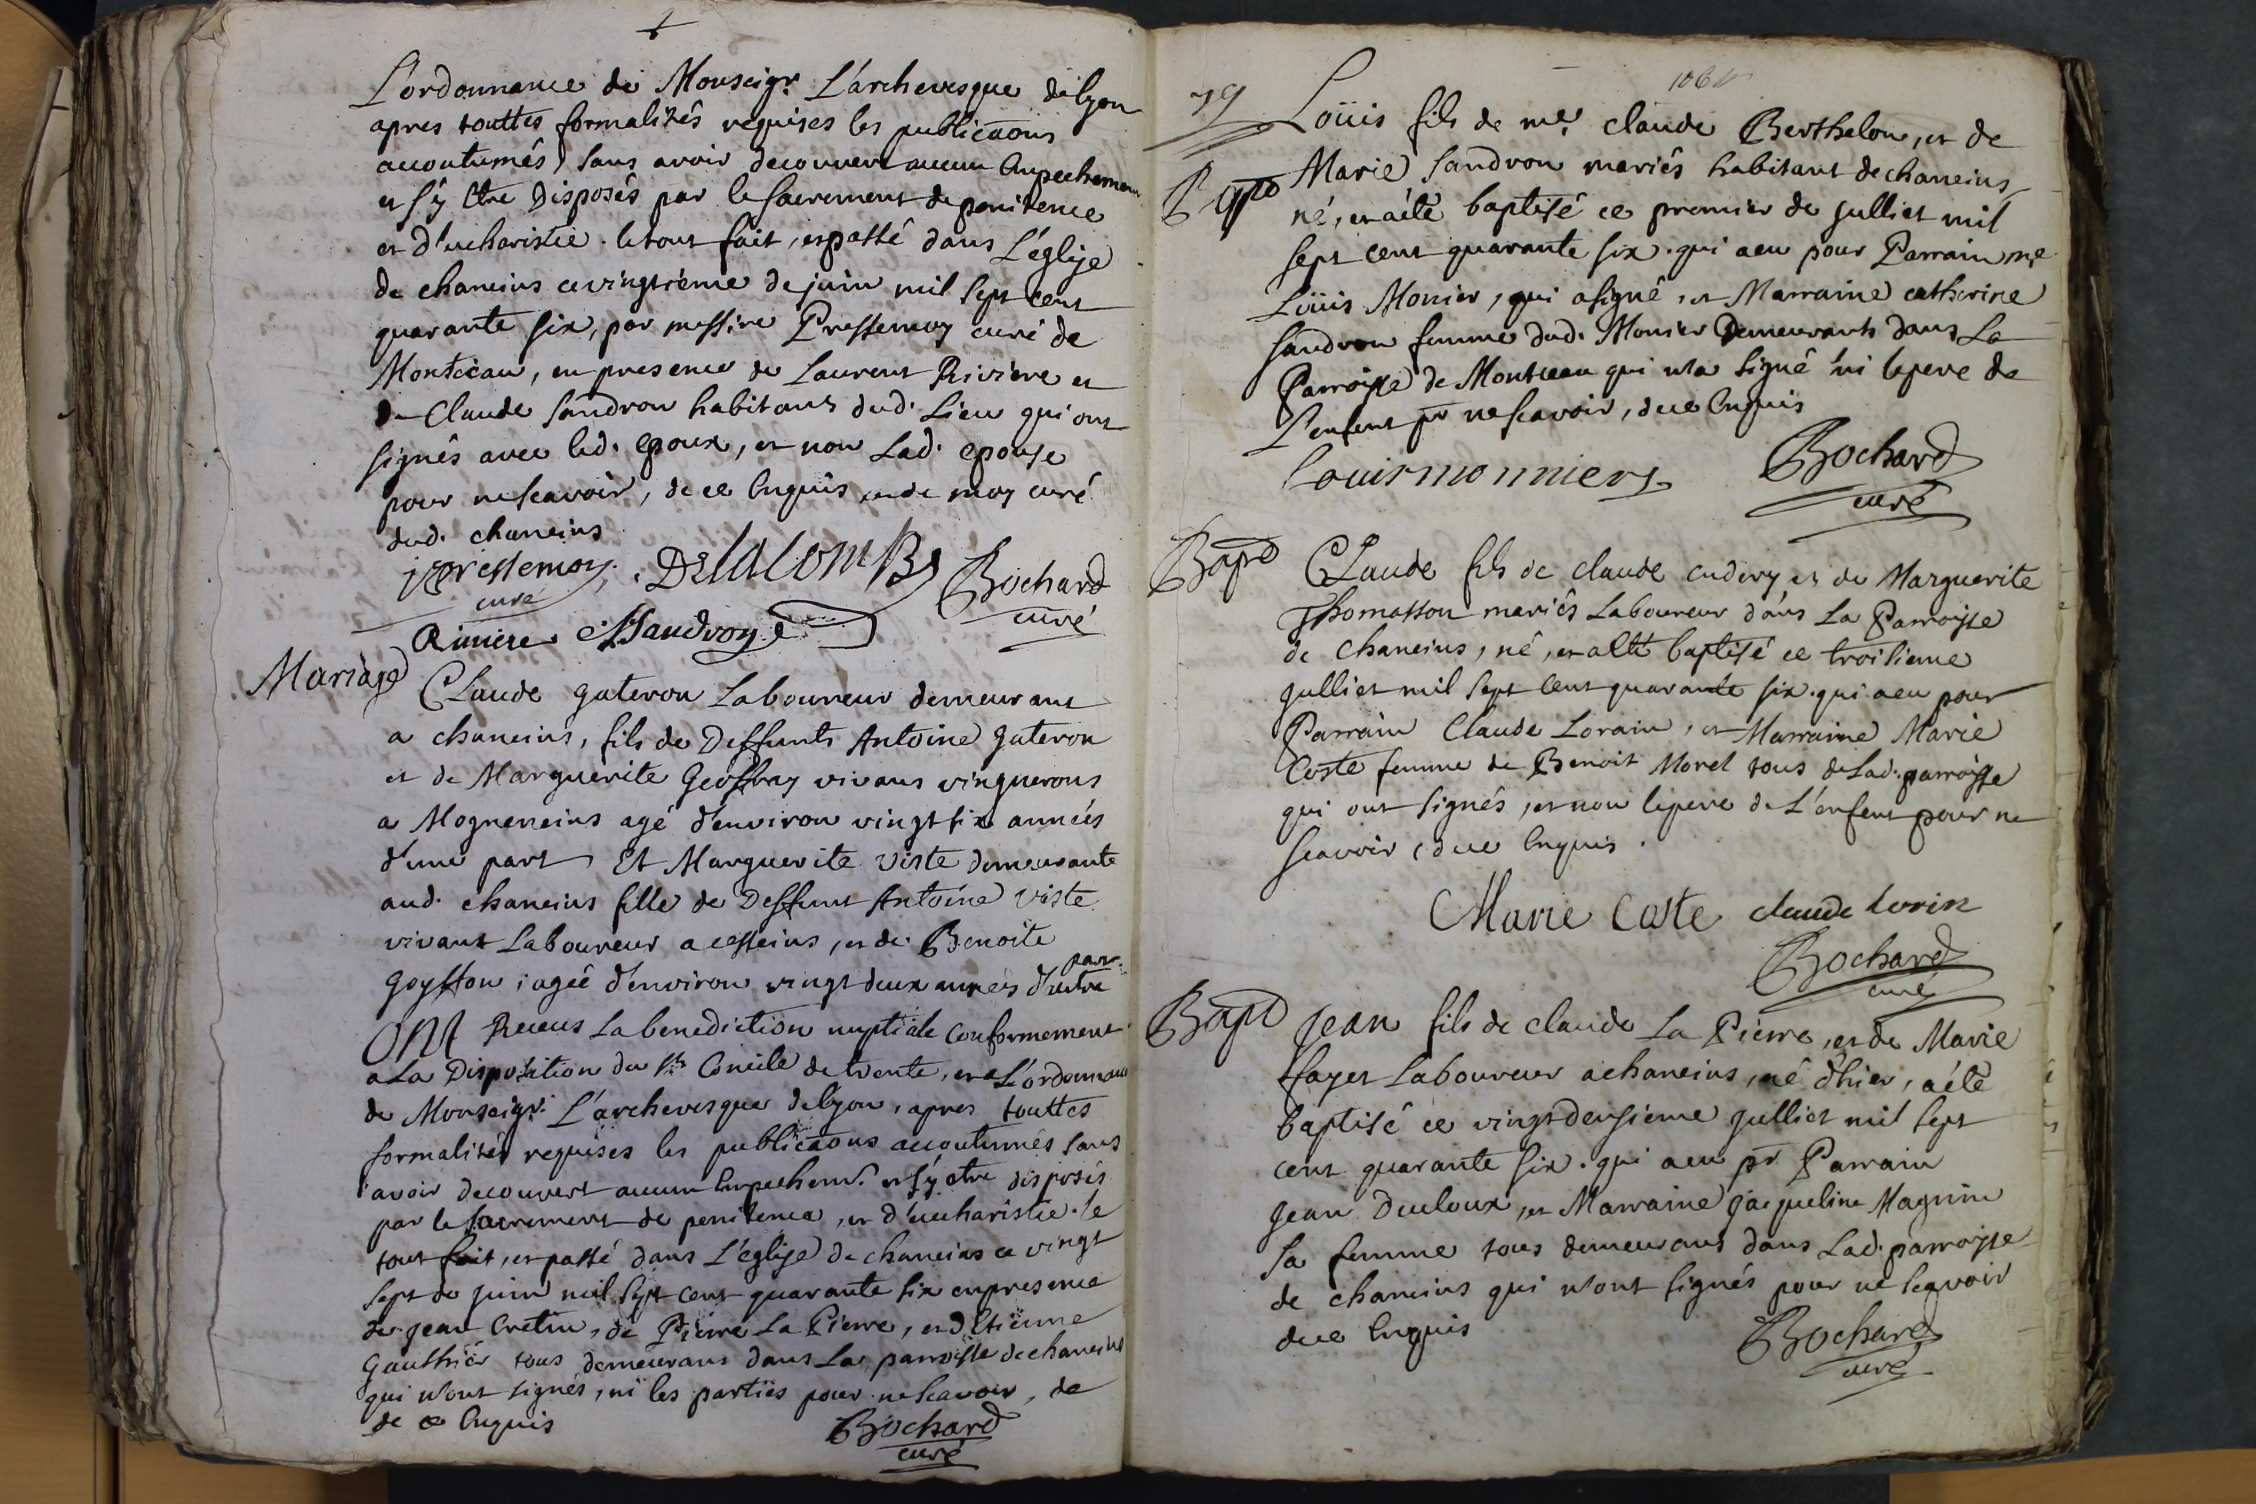 L'ordonnance de Monseigr. L'archevesque de lyon
apres touttes formalités requises les publicaons
accoutumés, sans avoir decouvert aucun Enpechement
et s'y Etre Disposés par le sacrement de penitence
et d'eucharistie. le tout fait, et passé dans L'églize
de chaneins ce vingtième de juin mil sept cent
quarante six, par messire Pressemoy curé de
Montceau, en presence de Laurent Riviere et
de Claude Sandron habitants dud. Lieu qui ont
signés avec led. Epoux, et non Lad. epouse
pour ne scavoir, de ce Enquis, et de moy curé
dud. chaneins
Pressemoy. DelacomBe Bochard
curé curé
Riviere C Sandron
Mariage Claude gateron Laboureur demeurant
a chaneins, fils de Deffunts Antoine gateron
et de Marguerite Geoffray vivans vinguerons
a Mogneneins agé d'environ vingt six années
d'une part, Et Marguerite Viste demeurante
aud. chaneins fille de Deffunt Antoine Viste
vivant Laboureur a cesseins, et de Benoite
goysson ; agéé d'environ vingt deux annéés d'autre
part
ONT Receus La benediction nuptiale conformement
a La Disposition du St. Concile de trente, et a L'ordonnance
de Monseigr. L'archevesque de lyon, apres touttes
formalités requises les publicaons accoutumés sans
avoir decouvert aucun Enpechemt. et s'y etre disposés
par le sacrement de penitence, et d'eucharistie. le
tout fait, et passé dans L'églize de chaneins ce vingt
sept de juin mil sept cent quarante six en presence
de jean Cretin, de Pierre La Pierre, et d'Etienne
Gauthier tous demeurans dans La parroisse de chaneins
qui n'ont signés, ni les parties pour ne scavoir, de
de ce Enquis
Bochard
curé
106
79
Bapt Loüis fils de me. claude Berthelon, et de
Marie Sandron mariés habitant de chaneins
né, et a été baptisé ce premier de julliet mil
sept cent quarante six. qui a eu pour Parrain me.
Loüis Monier, qui a signé, et Marraine catherine
Sandron femme dud. Monier Demeurants dans La
Parroisse de Montceau qui n'a signé ni le pere de
L'enfent pr. ne scavoir, de ce Enquis
Louis monniers Bochard
curé
Bapt Claude fils de claude cudery et de Marguerite
Thomasson mariés Laboureur dans La Parroisse
de chaneins, né, et a Eté baptisé ce troisieme
julliet mil sept cent quarante six. qui a eu pour
Parrain Claude Lorain, et Marraine Marie
Coste femme de Benoit Morel tous de Lad. parroisse
qui ont signés, et non le pere de L'enfent pour ne
scavoir, de ce Enquis.
Marie Coste claude lorin
Bochard
curé
Bapt Jean fils de claude La Pierre, et de Marie
ffayet Laboureur a chaneins, né d'hier, a été
baptisé ce vingt deusieme julliet mil sept
cent quarante six. qui a eu pr. Parrain
jean Ducloux, et Marraine jacqueline Magnin
sa femme tous demeurans dans Lad. parroisse
de chaneins qui n'ont signés pour ne scavoir
de ce Enquis
Bochard
curé